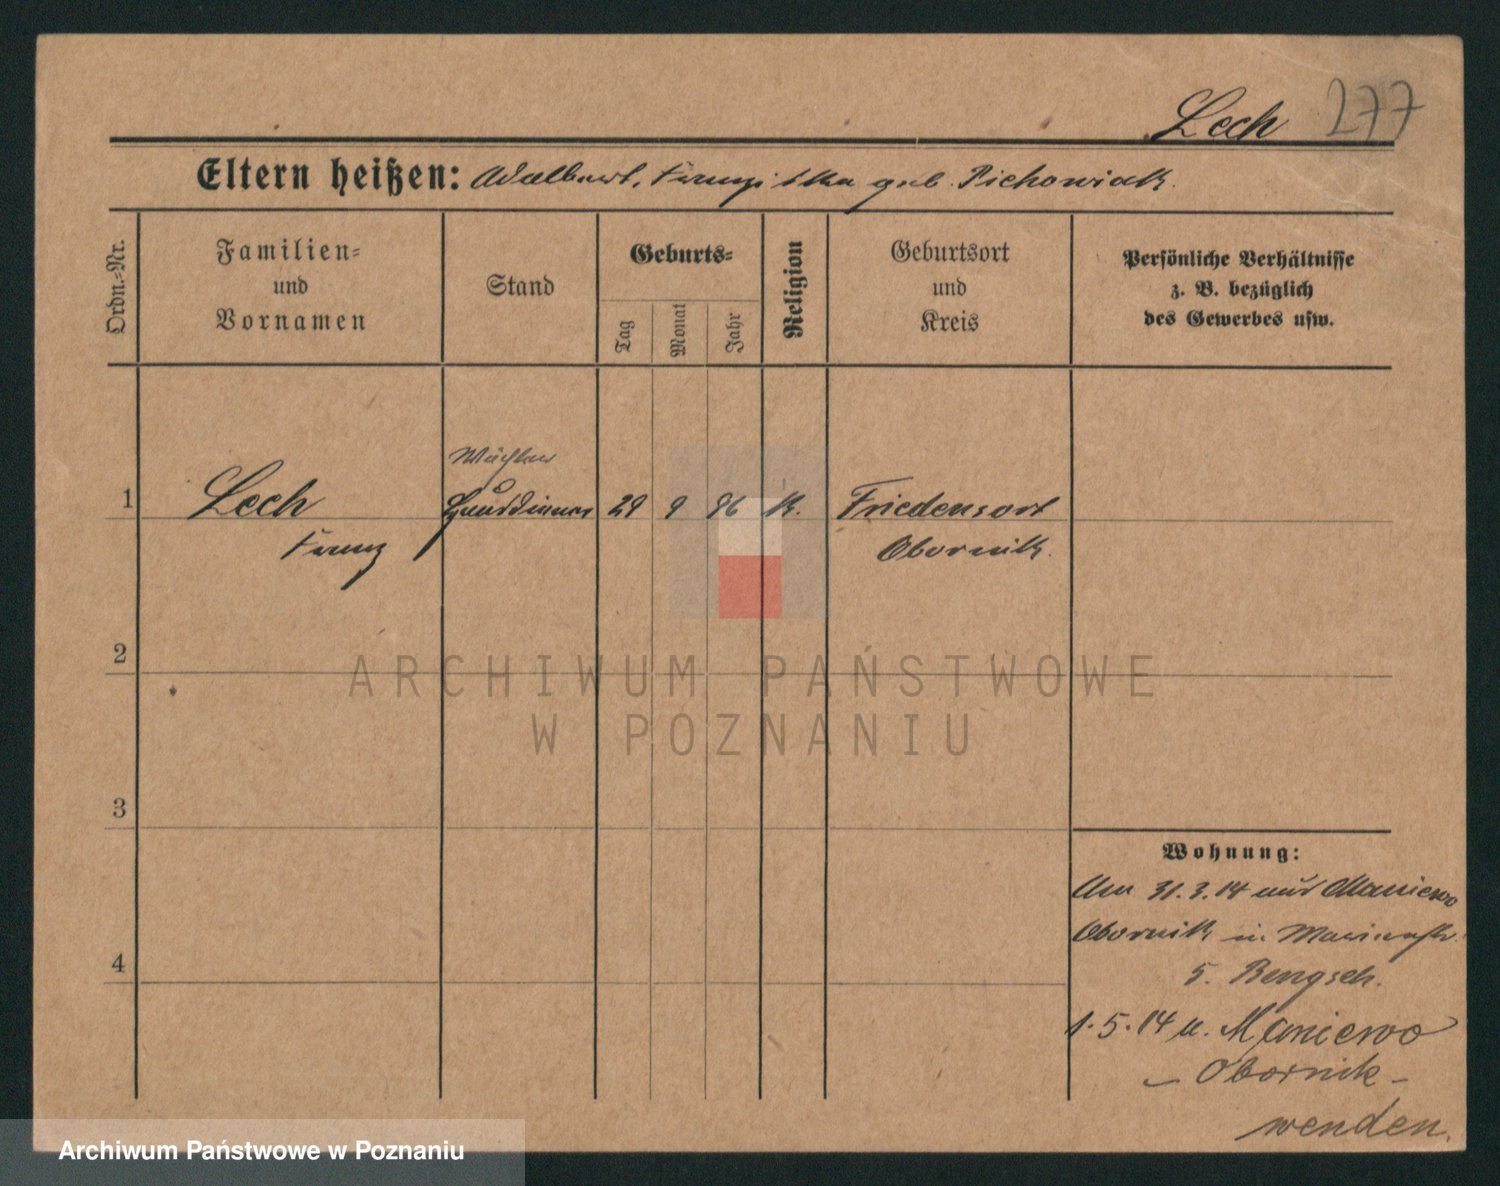 Lech 277
Eltern heißen: Adalbert, Franziska geb. Pichowiak
Ordn.-Nr.
Familien-
und
Vornamen
Stand
Geburts-
Tag
Monat
Jahr
Religion
Geburtsort
und
Kreis
Persönliche Verhältnisse
z. B. bezüglich
des Gewerbes usw.
Wächter
1 Lech Hausdiener 29 9 96 K. Friedensort
Franz Obornik.
2
3
4
Wohnung:
Am 31.3.14 aus Maniewo
Obornik in Marienstr.
5. Bengsch.
1.5.14 n. Maniewo
- Obornik -
wenden.
ARCHIWUM PAŃSTWOWE
W POZNANIU
Archiwum Państwowe w Poznaniu